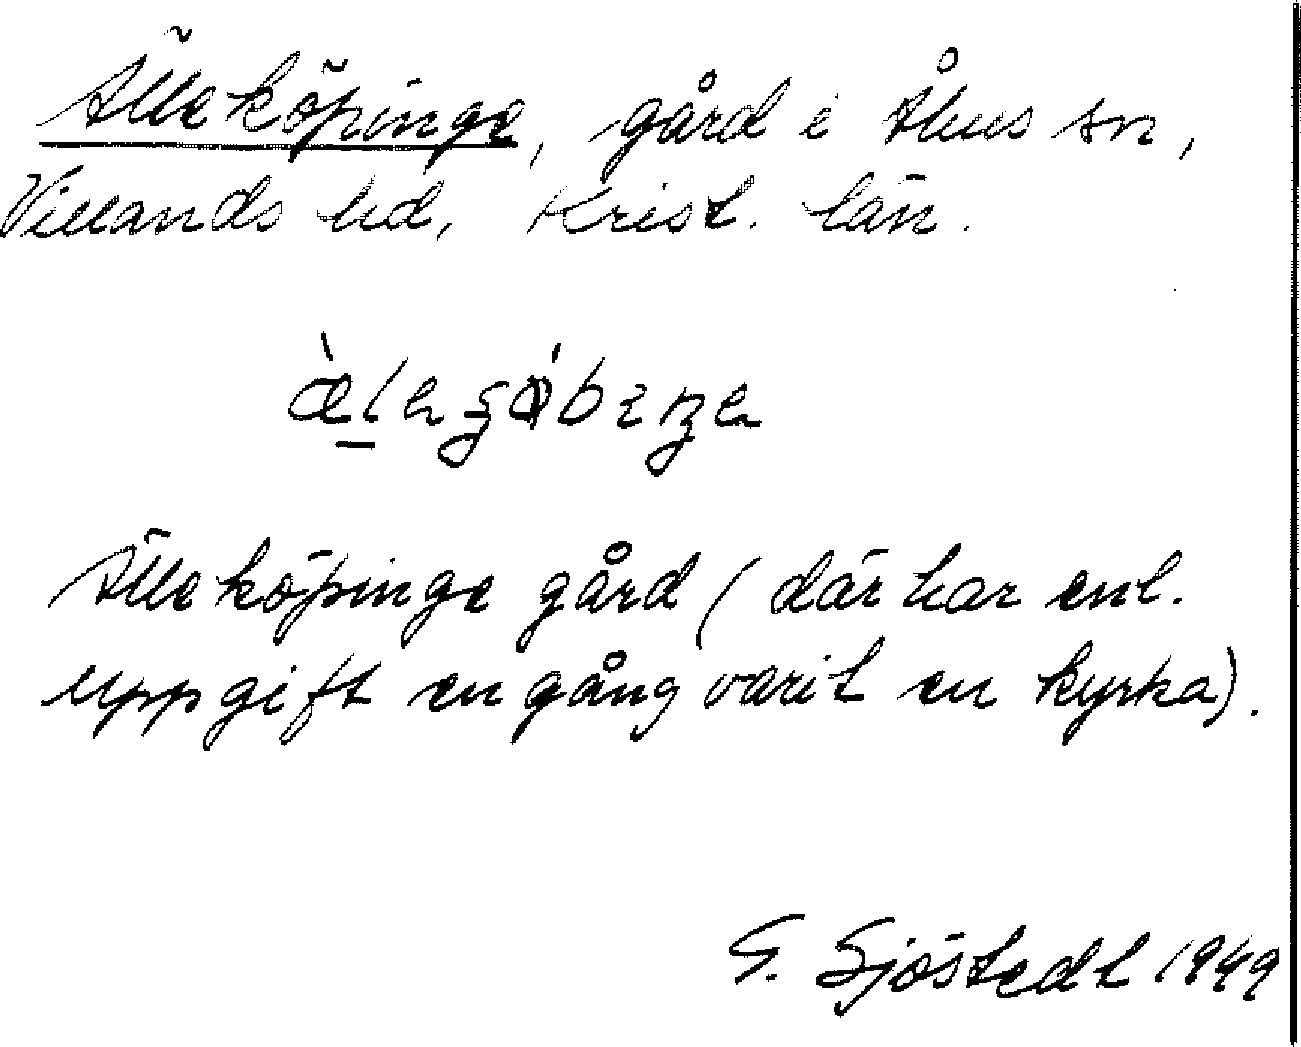 Älleköpinge, gård i Åhus sn,
Villands hd, Krist. län.
Älleköpinge gård (där har enl.
uppgift en gång varit en kyrka).
G. Sjöstedt 1949